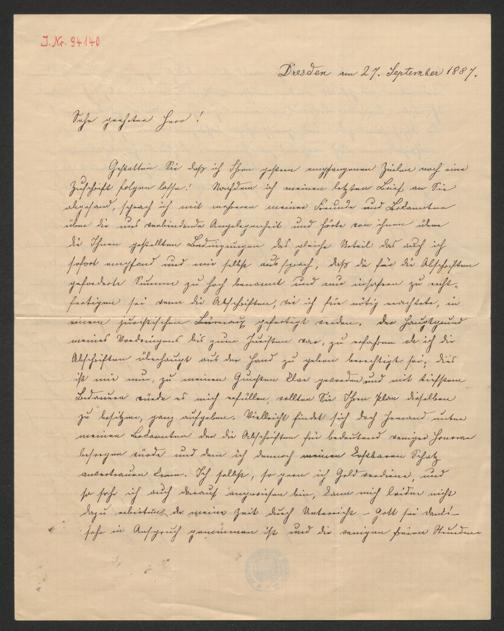 J. Nr. 94140
Dresden am 27. September 1887.
Sehr geehrter Herr!
Gestatten Sie daß ich Ihren gestern empfangenen Zeilen noch eine
Zuschrift folgen lasse! Nachdem ich meinen letzten Brief an Sie
abgesandt, sprach ich mit mehreren meiner Freunde und Bekannten
über die uns verbindende Angelegenheit und hörte von ihnen über
die Ihnen gestellten Bedingungen das gleiche Urteil das auch ich
sofort empfand und mir selbst aussprach, daß die für die Abschriften
geforderte Summe zu hoch benannt und nur insofern zu recht-
fertigen sei wenn die Abschriften, wie ich für nötig erachtete, in
einem juristischen Büreau gefertigt werden. Der Hauptgrund
meines Vordringens bis zum Juristen war, zu erfahren ob ich die
Abschriften überhaupt aus der Hand zu geben berechtigt sei; dies
ist mir nun, zu meinen Gunsten klar geworden und mit tiefstem
Bedauern würde es mich erfüllen, wollten Sie Ihren Plan dieselben
zu besitzen, ganz aufgeben. Vielleicht findet sich doch Jemand unter
meinen Bekannten der die Abschriften für bedeutend weniger Honorar
besorgen würde und dem ich dennoch meinen kostbaren Schatz
anvertrauen kann. Ich selbst, so gern ich Geld verdiene, und
so sehr ich auch darauf angewiesen bin, kann mich leider nicht
dazu erbieten da meine Zeit durch Unterricht – Gott sei Dank –
sehr in Anspruch genommen ist und die wenigen freien Stunden